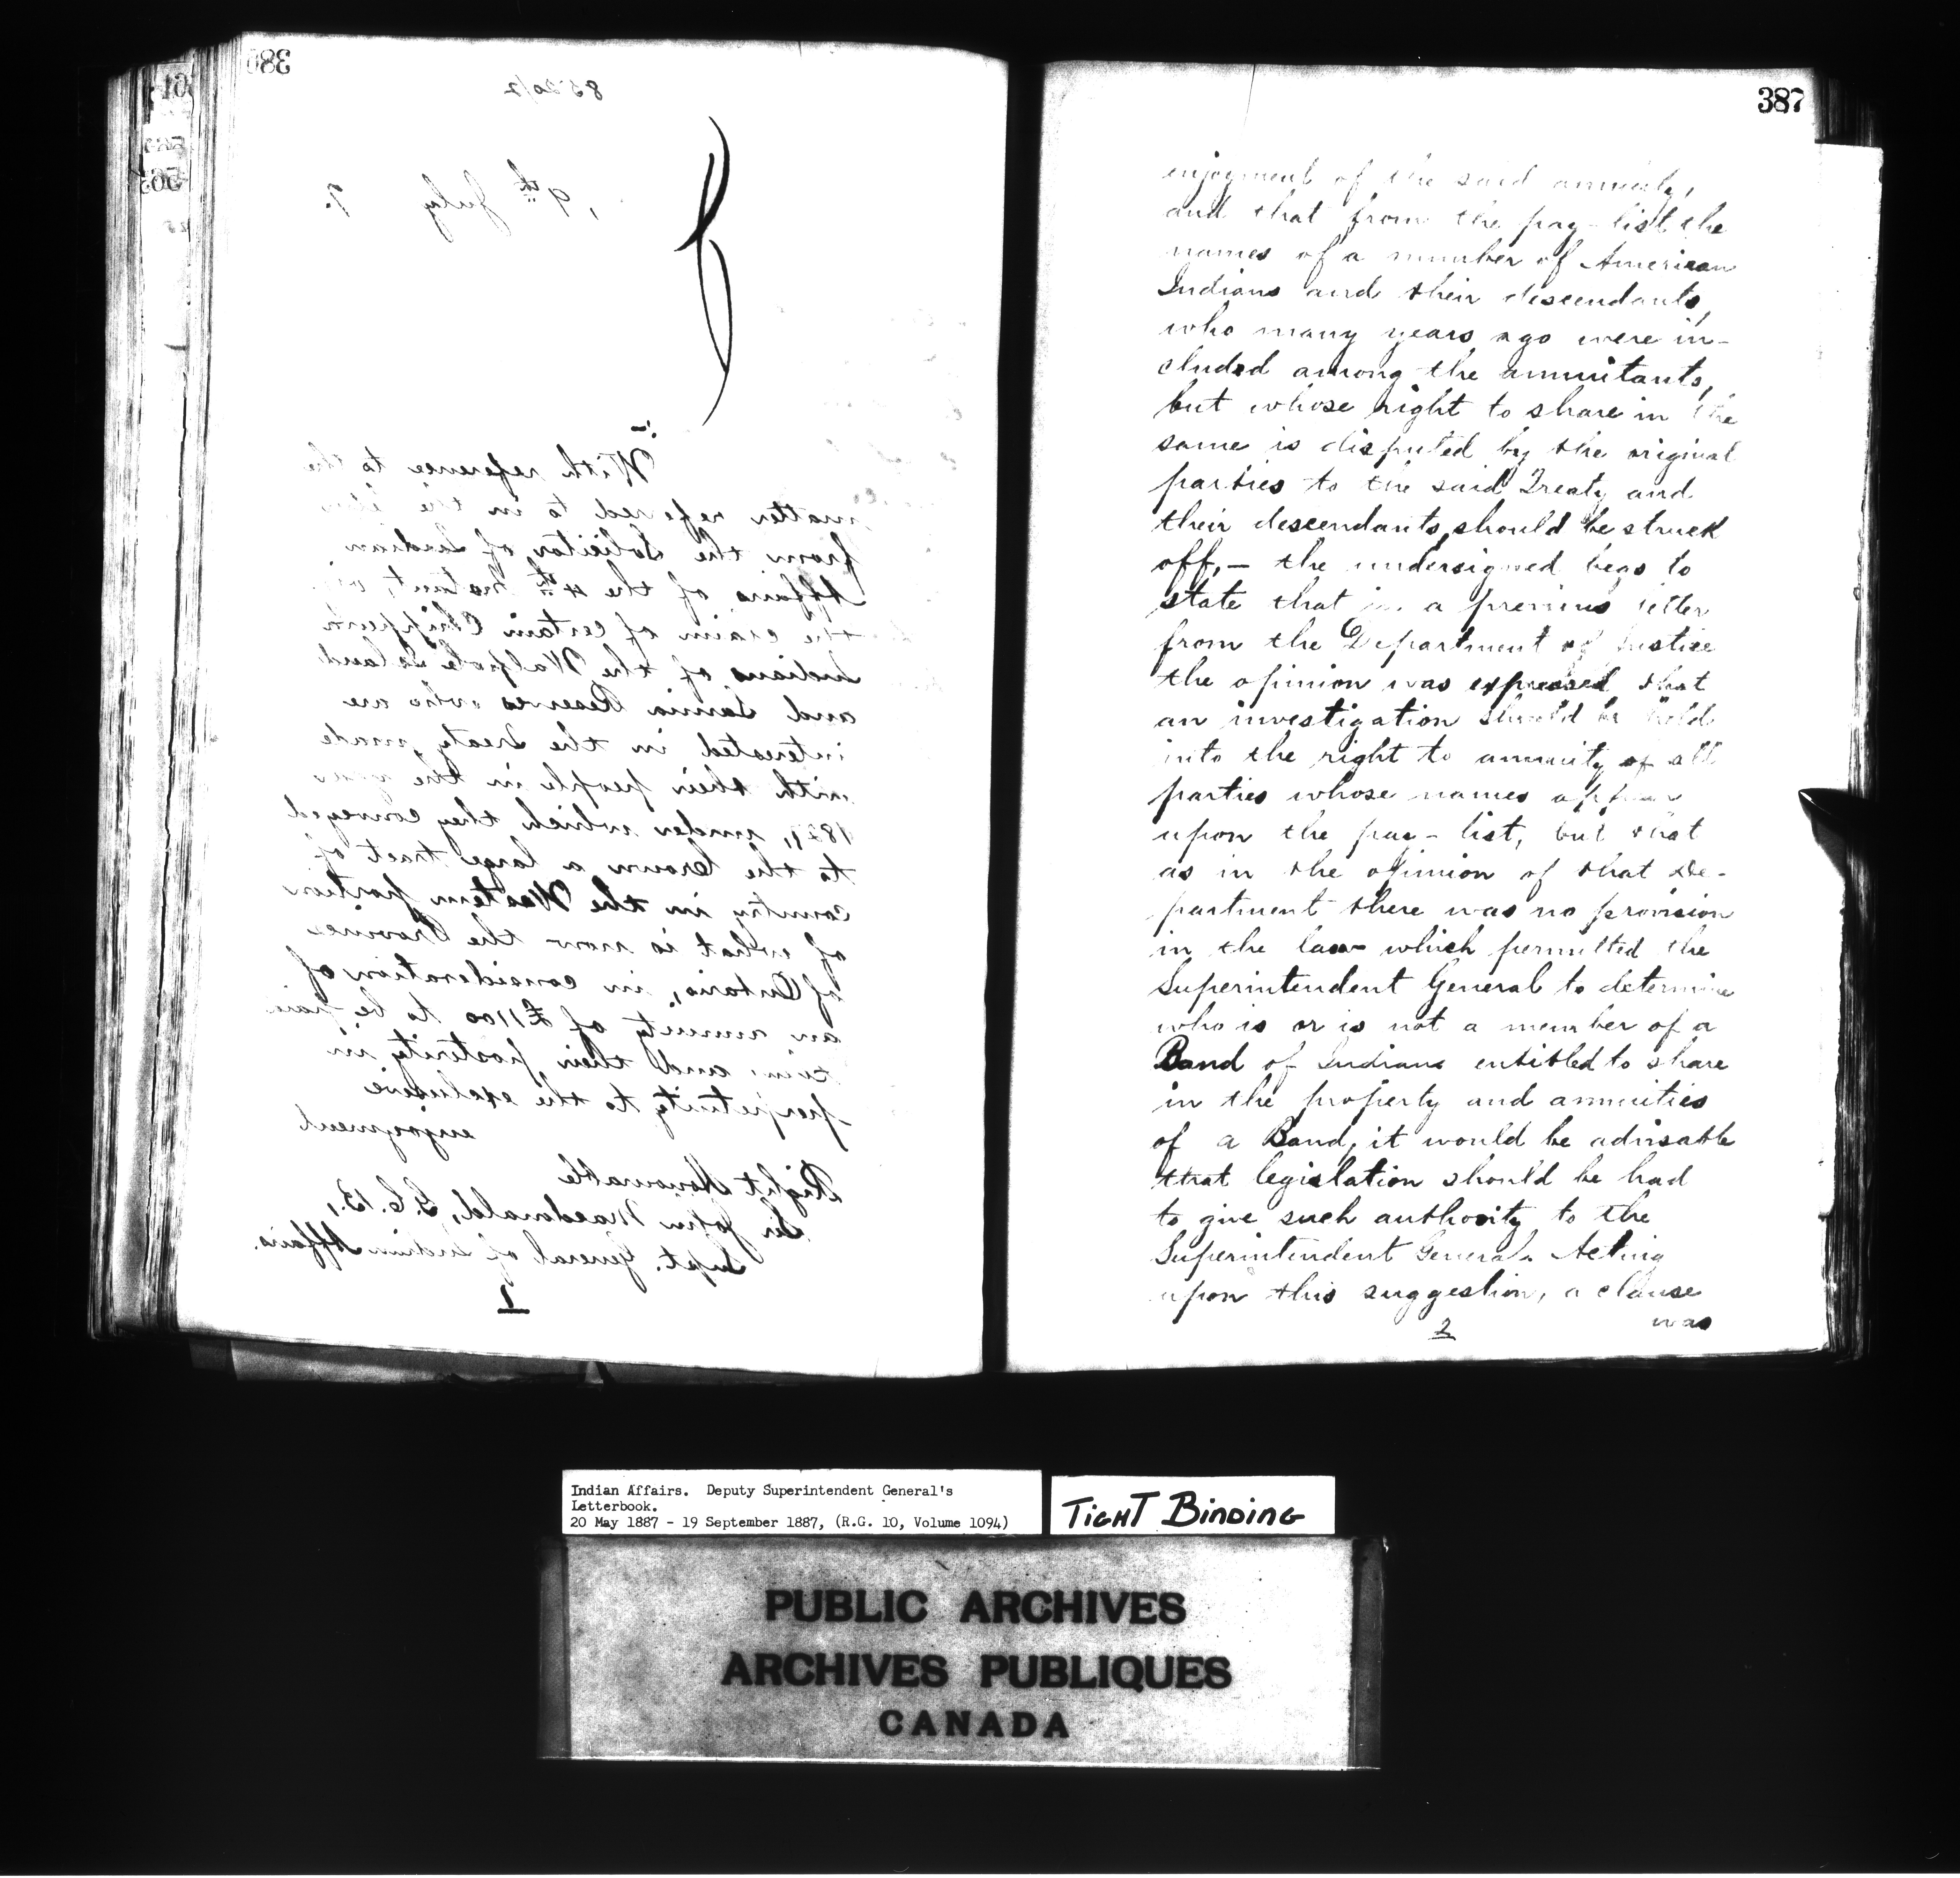 386
8520/2
, 9th July 7.
:-
With reference to the
matter referred to in the
from the Solicitor of Indian
Affairs of the 4th Instant,
the claim of certain Chippewa
Indians of the Walpole Island
and Sarnia Reserves who are
interested in the Treaty made
with their people in the year
1827, under which they conveyed
to the Crown a large tract of
country in the Western portion
of what is now the Province
of Ontario, in consideration of
an annuity of £1100 to be paid
them and their posterity in
perpetuity to the exclusive
enjoyment
Right Honourable
Sir John Macdonald, G.C.B.,
Supt. General of Indian Affairs.
1
387
enjoyment of the said annuity,
and that from the pay-list the
names of a number of American
Indians and their descendants,
who many years ago were in-
cluded among the annuitants,
but whose right to share in the
same is disputed by the original
parties to the said Treaty and
their descendants, should be struck
off, — the undersigned begs to
state that in a previous letter
from the Department of Justice
the opinion was expressed that
an investigation should be held
into the right to annuity of all
parties whose names appear
upon the pay-list, but that
as in the opinion of that De-
partment there was no provision
in the law which permitted the
Superintendent General to determine
who is or is not a member of a
Band of Indians entitled to share
in the property and annuities
of a Band, it would be advisable
that legislation should be had
to give such authority to the
Superintendent General. Acting
upon this suggestion, a clause
was
2
Indian Affairs. Deputy Superintendent General's
Letterbook.
20 May 1887 - 19 September 1887, (R.G. 10, Volume 1094)
TIGHT BINDING
PUBLIC ARCHIVES
ARCHIVES PUBLIQUES
CANADA